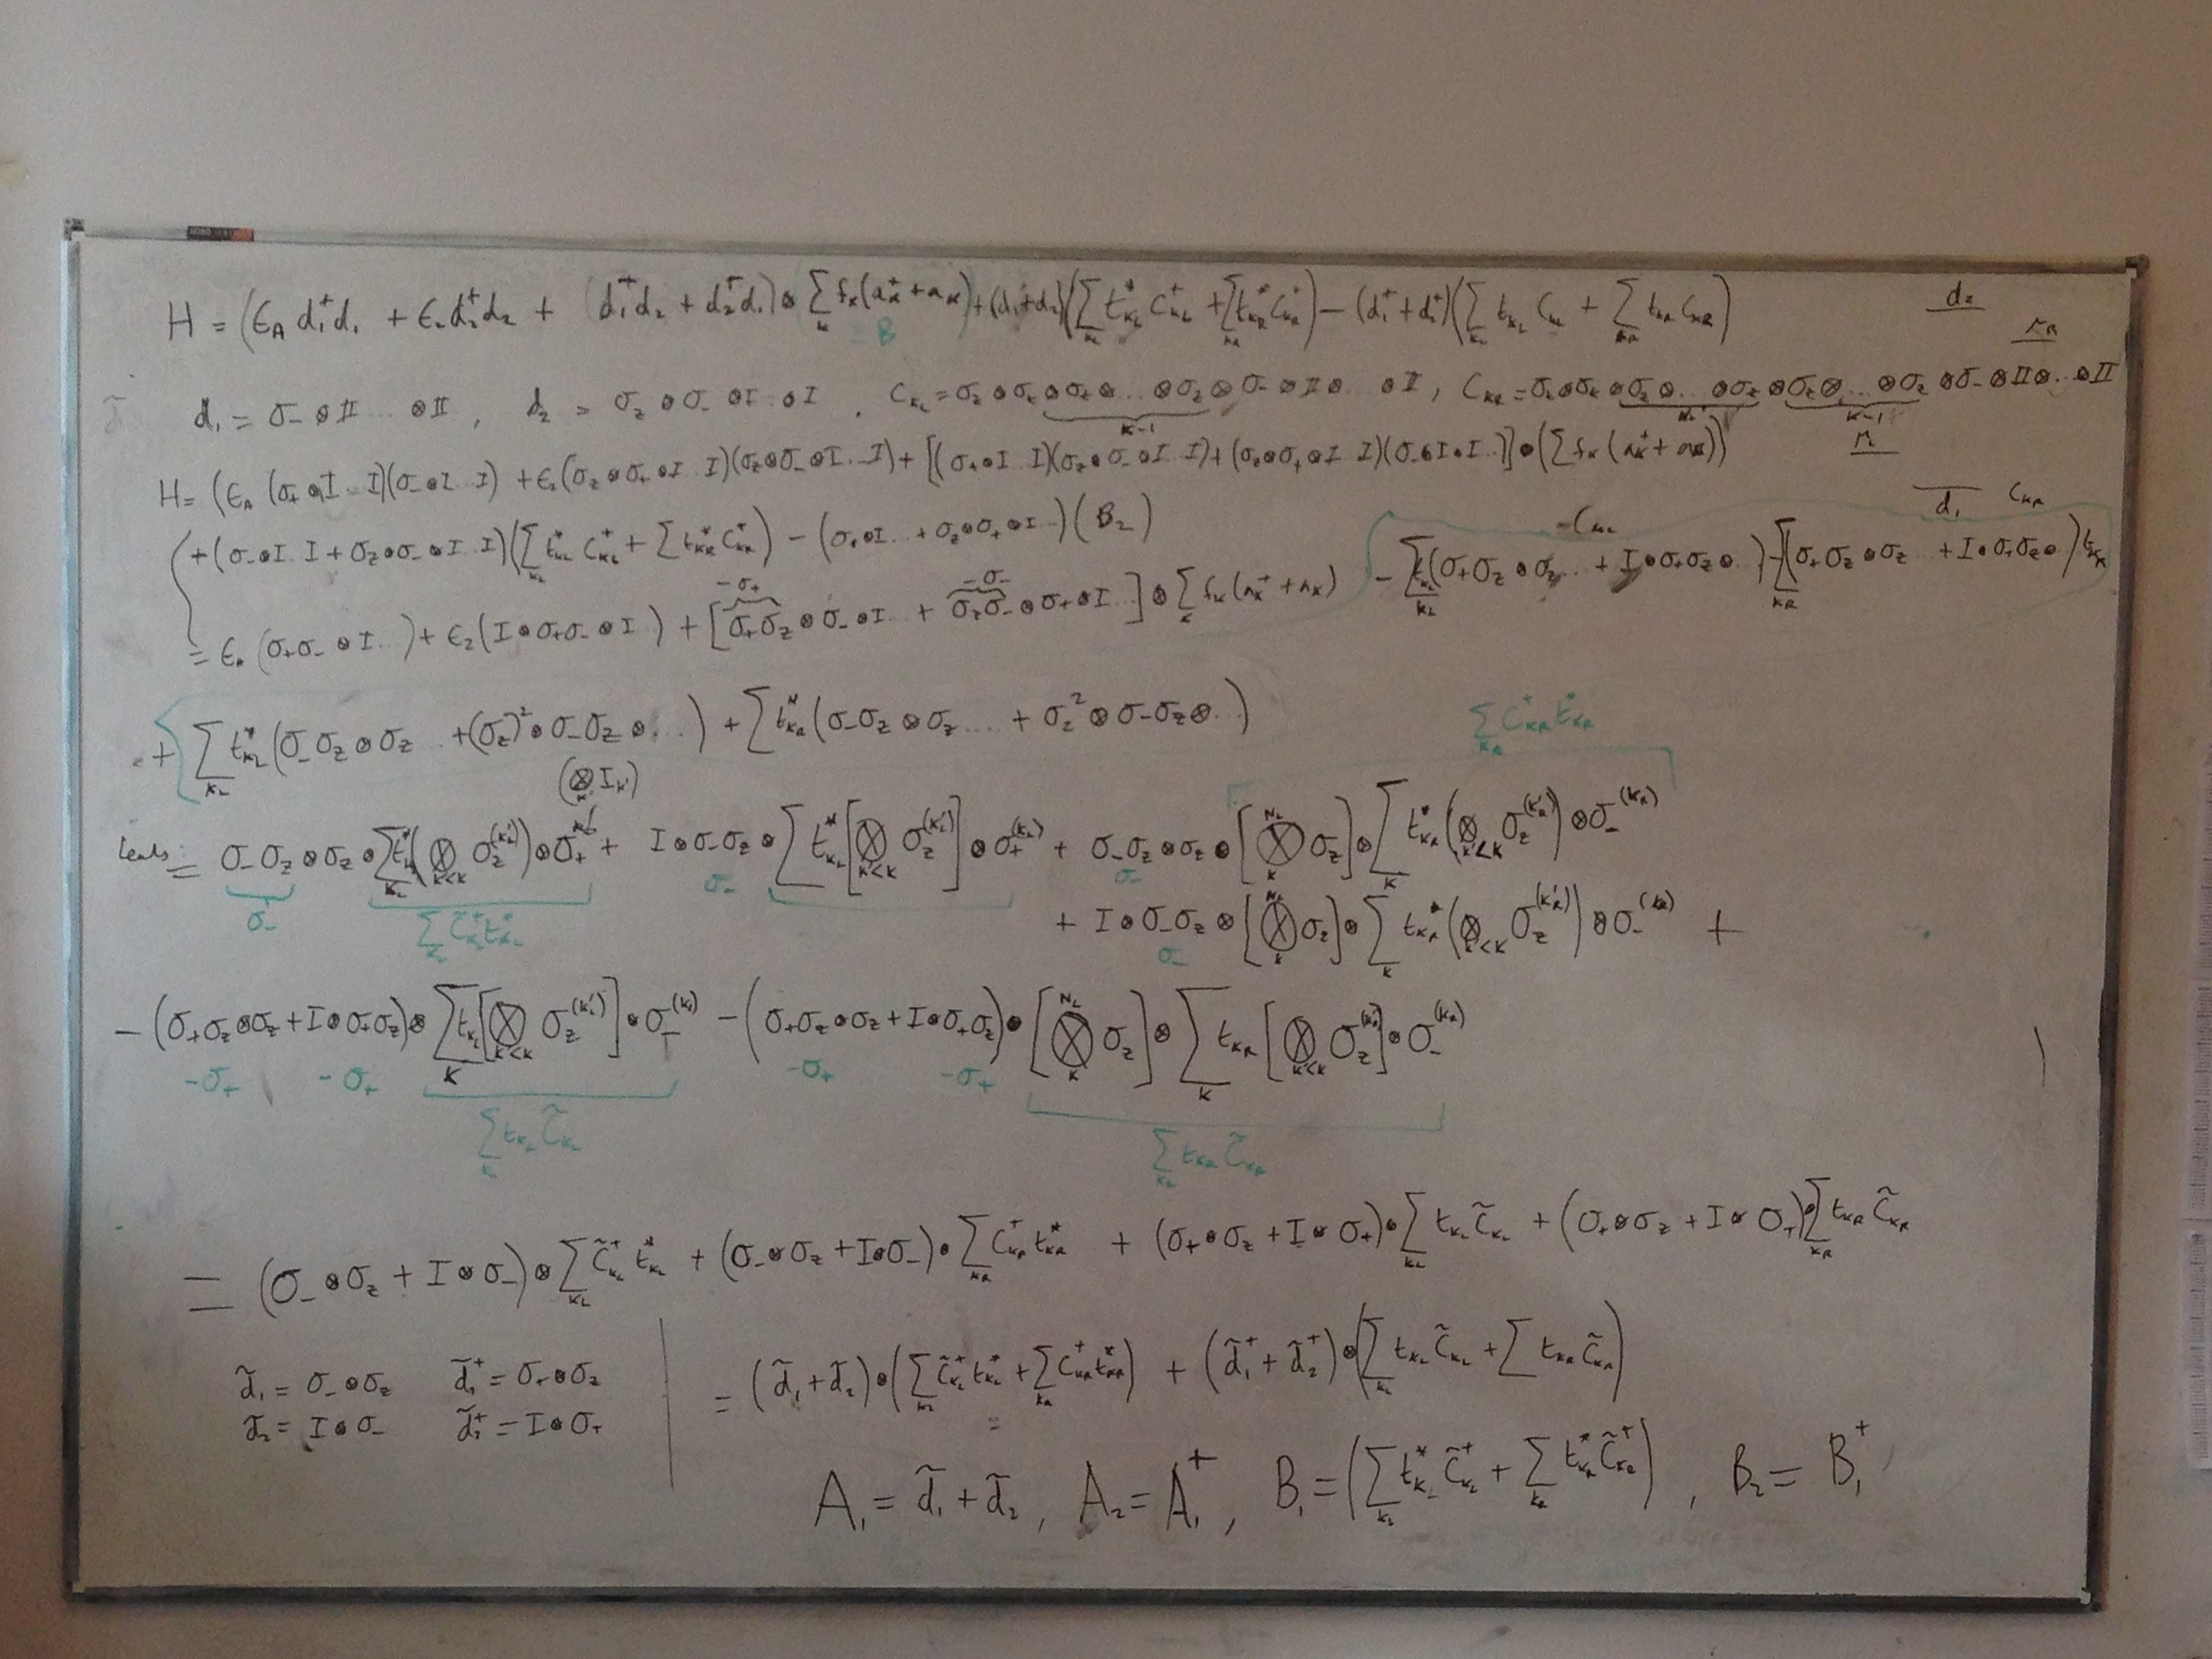 H = (ϵ_A d₁⁺d₁ + ϵ₂d₂⁺d₂ + (d₁⁺d₂ + d₂⁺d₁)⊗ ∑_k f_k(a_k⁺ + a_k) + (d₁+d₂)(∑_{k_L} t*_{k_L} C⁺_{k_L} + ∑_{k_R} t*_{k_R} C⁺_{k_R}) − (d₁⁺+d₂⁺)(∑_{k_L} t_{k_L} C_{k_L} + ∑_{k_R} t_{k_R} C_{k_R})
= B
d₂
μ_R
d₁ = σ₋⊗𝕀...⊗𝕀 , d₂ = σ_z⊗σ₋⊗I..⊗I , C_{k_L} = σ_z⊗σ_z⊗σ_z⊗...⊗σ_z⊗σ₋⊗𝕀⊗...⊗𝕀 , C_{k_R} = σ_z⊗σ_z⊗σ_z⊗...⊗σ_z⊗σ_z⊗...⊗σ_z⊗σ₋⊗𝕀⊗..⊗𝕀
k-1 N_L k-1
H = (ϵ_A (σ₊⊗I...I)(σ₋⊗I...I) + ϵ₂(σ_z⊗σ₊⊗I..I)(σ_z⊗σ₋⊗I...I) + [(σ₊⊗I..I)(σ_z⊗σ₋⊗I..I) + (σ_z⊗σ₊⊗I..I)(σ₋⊗I⊗I..)]⊗(∑ f_k(a_k⁺ + a_k))
μ_L
d₁ C_{k_R}
+ (σ₋⊗I..I + σ_z⊗σ₋⊗I..I)(∑_{k_L} t*_{k_L} C⁺_{k_L} + ∑ t*_{k_R} C⁺_{k_R}) − (σ₊⊗I... + σ_z⊗σ₊⊗I..)(B₂)
-C_{k_L}
− ∑_{k_L} t_{k_L}(σ₊σ_z⊗σ_z... + I⊗σ₊σ_z⊗..) − ∑_{k_R}(σ₊σ_z⊗σ_z... + I⊗σ₊σ_z⊗)t_{k_R}
-σ₊ -σ₋
= ϵ_A (σ₊σ₋⊗I...) + ϵ₂(I⊗σ₊σ₋⊗I..) + [σ₊σ_z⊗σ₋⊗I.. + σ_zσ₋⊗σ₊⊗I...]⊗∑_k f_k(a_k⁺ + a_k)
+ ∑_{k_L} t*_{k_L}(σ₋σ_z⊗σ_z... + (σ_z)²⊗σ₋σ_z⊗...) + ∑ t*_{k_R}(σ₋σ_z⊗σ_z.... + σ_z²⊗σ₋σ_z⊗..)
∑_{k_R} C⁺_{k_R} t*_{k_R}
(⊗_{k'} I_{k'})
leads = σ₋σ_z⊗σ_z⊗∑_{k_L} t*_{k_L}(⊗_{k'<k} σ_z^{(k'_L)})⊗σ₊^{k_L} + I⊗σ₋σ_z⊗∑ t*_{k_L}[⊗_{k'<k} σ_z^{(k'_L)}]⊗σ₊^{(k_L)} + σ₋σ_z⊗σ_z⊗[⊗_k^{N_L} σ_z]⊗∑_k t*_{k_R}(⊗_{k'<k} σ_z^{(k'_R)})⊗σ₋^{(k_R)}
σ₋ ∑_{k_L} C̃⁺_{k_L} t*_{k_L} σ₋ σ₋
+ I⊗σ₋σ_z⊗[⊗_k^{N_L} σ_z]⊗∑_k t*_{k_R}(⊗_{k'<k} σ_z^{(k'_R)})⊗σ₋^{(k_R)} +
σ₋
− (σ₊σ_z⊗σ_z + I⊗σ₊σ_z)⊗∑_k t_{k_L}[⊗_{k'<k} σ_z^{(k'_L)}]⊗σ₋^{(k_L)} − (σ₊σ_z⊗σ_z + I⊗σ₊σ_z)⊗[⊗_k^{N_L} σ_z]⊗∑_k t_{k_R}[⊗_{k'<k} σ_z^{(k'_R)}]⊗σ₋^{(k_R)}
-σ₊ -σ₊ -σ₊ -σ₊
∑_{k_L} t_{k_L} C̃_{k_L} ∑_{k_R} t_{k_R} C̃_{k_R}
= (σ₋⊗σ_z + I⊗σ₋)⊗∑_{k_L} C̃⁺_{k_L} t*_{k_L} + (σ₋⊗σ_z + I⊗σ₋)⊗∑_{k_R} C⁺_{k_R} t*_{k_R} + (σ₊⊗σ_z + I⊗σ₊)⊗∑_{k_L} t_{k_L} C̃_{k_L} + (σ₊⊗σ_z + I⊗σ₊)⊗∑_{k_R} t_{k_R} C̃_{k_R}
d̃₁ = σ₋⊗σ_z d̃₁⁺ = σ₊⊗σ_z
d̃₂ = I⊗σ₋ d̃₂⁺ = I⊗σ₊
= (d̃₁+d̃₂)⊗(∑_{k_L} C̃⁺_{k_L} t*_{k_L} + ∑_{k_R} C⁺_{k_R} t*_{k_R}) + (d̃₁⁺ + d̃₂⁺)⊗(∑_{k_L} t_{k_L} C̃_{k_L} + ∑ t_{k_R} C̃_{k_R})
A₁ = d̃₁ + d̃₂ , A₂ = A₁⁺ , B₁ = (∑_{k_L} t*_{k_L} C̃⁺_{k_L} + ∑_{k_R} t*_{k_R} C̃⁺_{k_R}) , B₂ = B₁⁺